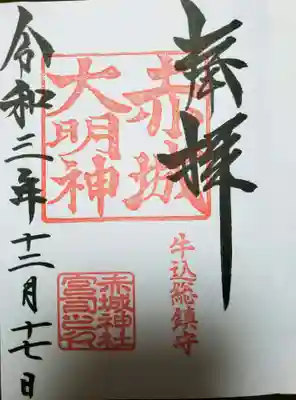 奉拝
赤城
大明神
牛込総鎮守
赤城神社
宮司之印
令和三年十二月十七日